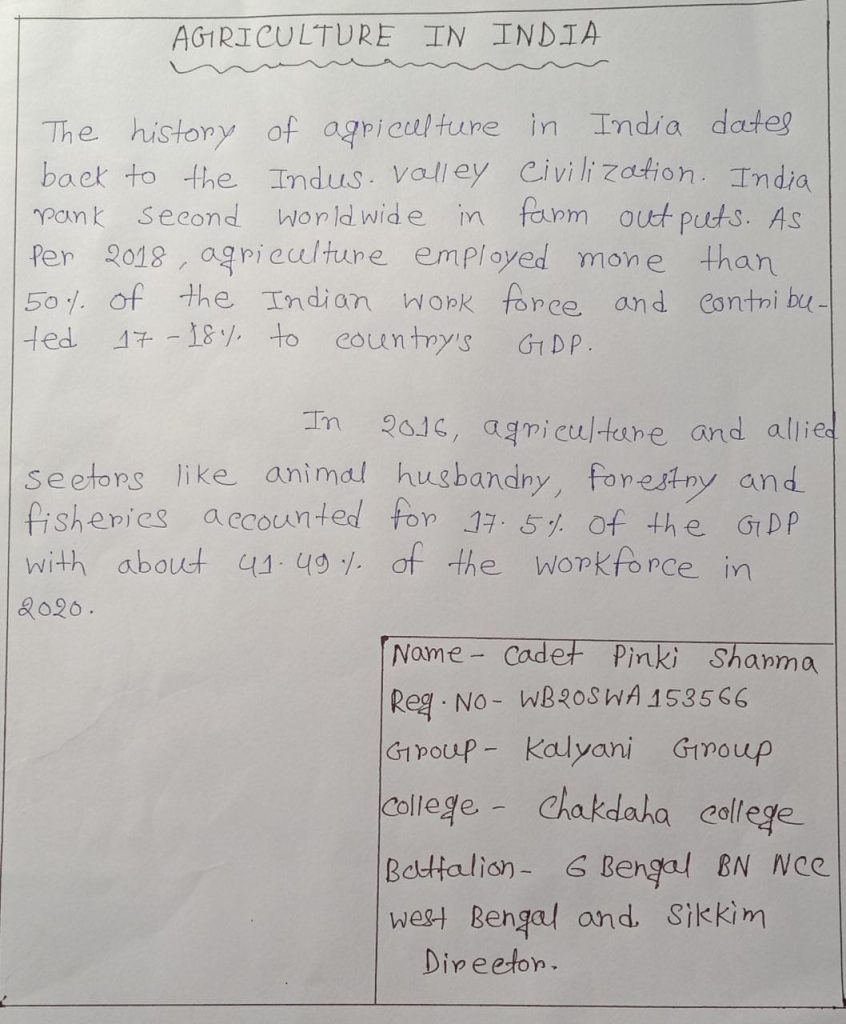 AGRICULTURE IN INDIA
The history of agriculture in India dates
back to the Indus. valley civilization. India
rank second worldwide in farm out puts. As
Per 2018, agriculture employed more than
50%. of the Indian work force and contribu-
ted 17-18% to country's GDP.
In 2016, agriculture and allied
sectors like animal husbandry, forestry and
fisheries accounted for 17.5% of the GDP
with about 41.49% of the workforce in
2020.
Name - Cadet Pinki Sharma
Reg. No - WB20SWA153566
Group - Kalyani Group
College - Chakdaha college
Battalion - 6 Bengal BN NCC
West Bengal and Sikkim
Director.